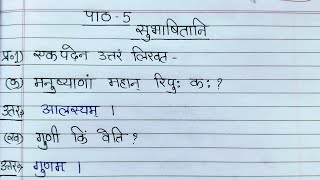 पाठ-5
सुभाषितानि
प्र.1) एकपदेन उत्तरं लिखत -
(क) मनुष्याणां महान् रिपुः कः?
उत्तर→ आलस्यम् ।
(ख) गुणी किं वेति?
उत्तर→ गुणम ।